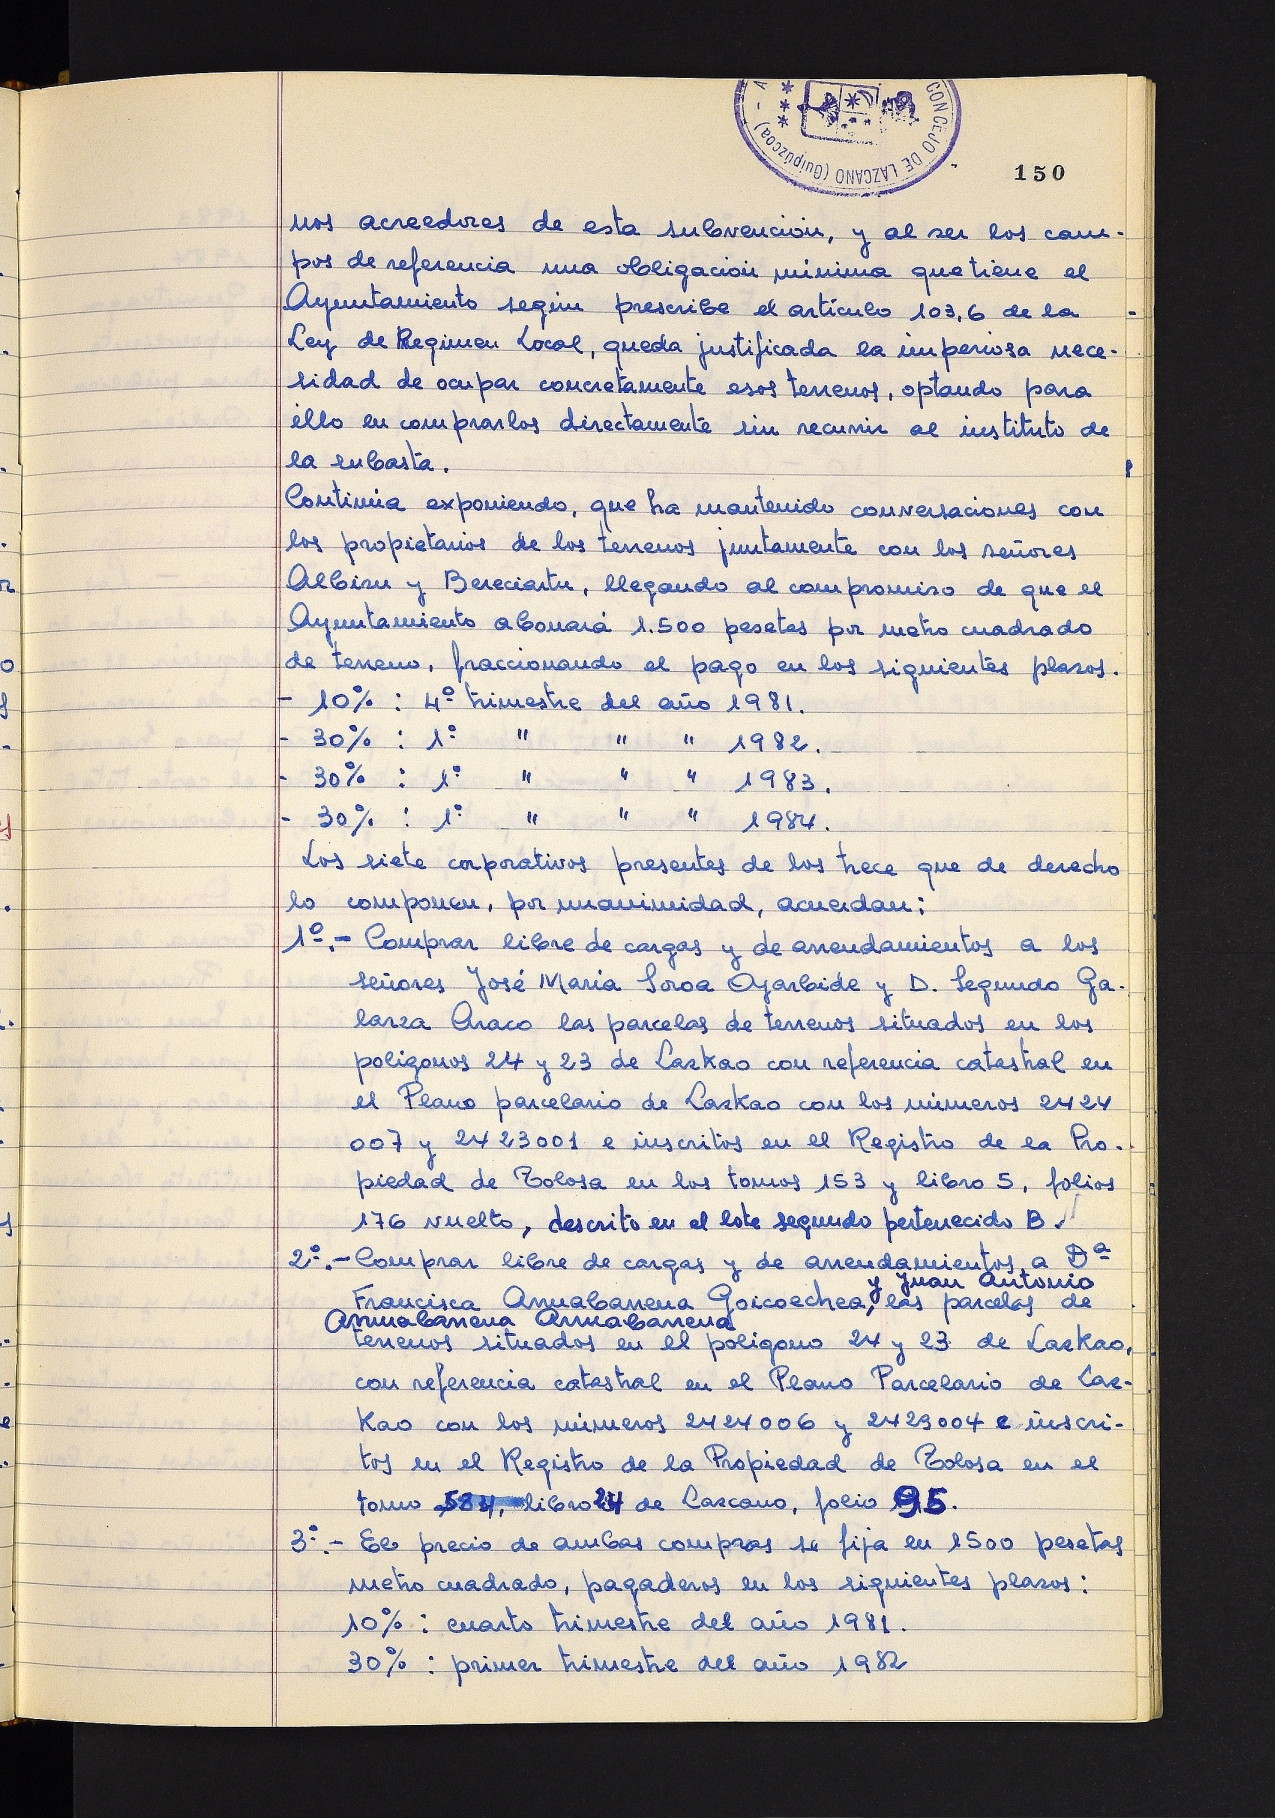 CONCEJO DE LAZCANO (Guipúzcoa) - A
150
nos acreedores de esta subvención, y al ser los cam-
pos de referencia una obligación mínima que tiene el
Ayuntamiento según prescribe el artículo 103,6 de la
Ley de Regimen Local, queda justificada la imperiosa nece-
sidad de ocupar concretamente esos terrenos, optando para
ello en comprarlos directamente sin recurrir al instituto de
la subasta.
Continúa exponiendo, que ha mantenido conversaciones con
los propietarios de los terrenos juntamente con los señores
Albisu y Bereciartu, llegando al compromiso de que el
Ayuntamiento abonará 1.500 pesetas por metro cuadrado
de terreno, fraccionando el pago en los siguientes plazos.
- 10% : 4º trimestre del año 1981.
- 30% : 1º " " " 1982.
- 30% : 1º " " " 1983.
- 30% : 1º " " " 1984.
Los siete corporativos presentes de los trece que de derecho
lo componen, por unanimidad, acuerdan:
1º.- Comprar libre de cargas y de arrendamientos a los
señores José Maria Soroa Oyarbide y D. Segundo Ga-
larza Araco las parcelas de terrenos situados en los
poligonos 24 y 23 de Lazkao con referencia catastral en
el Plano parcelario de Lazkao con los números 2424
007 y 2423001 e inscritos en el Registro de la Pro-
piedad de Tolosa en los tomos 153 y libro 5, folios
176 vuelto, descrito en el lote segundo pertenecido B.
2º.- Comprar libre de cargas y de arrendamientos a Dª
y Juan Antonio
Francisca Annabarrena Goicoechea, las parcelas de
Annabarrena Annabarrena
terrenos situados en el poligono 24 y 23 de Lazkao,
con referencia catastral en el Plano Parcelario de Laz-
kao con los números 2424006 y 2423004 e inscri-
tos en el Registro de la Propiedad de Tolosa en el
tomo 584, libro 24 de Lazcano, folio 95.
3º.- El precio de ambas compras se fija en 1500 pesetas
metro cuadrado, pagaderos en los siguientes plazos:
10% : cuarto trimestre del año 1981.
30% : primer trimestre del año 1982